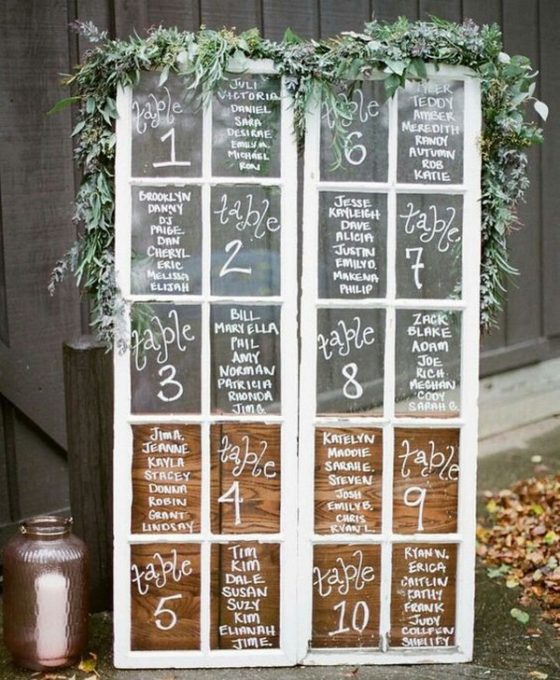 table
1
JULI
VICTORIA
DANIEL
SARA
DESIRAE
EMILY H.
MICHAEL
RON
BROOKLYN
DANNY
DJ
PAIGE
DAN
CHERYL
ERIC
MELISSA
ELIJAH
table
2
table
3
BILL
MARYELLA
PHIL
AMY
NORMAN
PATRICIA
RHONDA
JIM G.
JIM A.
JEANNE
KAYLA
STACEY
DONNA
ROBIN
GRANT
LINDSAY
table
4
table
5
TIM
KIM
DALE
SUSAN
SUZY
KIM
ELIANAH
JIM E.
table
6
TYLER
TEDDY
AMBER
MEREDITH
RANDY
AUTUMN
ROB
KATIE
JESSE
KAYLEIGH
DAVE
ALICIA
JUSTIN
EMILY D.
MAKENA
PHILIP
table
7
table
8
ZACK
BLAKE
ADAM
JOE
RICH
MEGHAN
CODY
SARAH G.
KATELYN
MADDIE
SARAH E.
STEVEN
JOSH
EMILY B.
CHRIS
RYAN L.
table
9
table
10
RYAN W.
ERICA
CAITLIN
KATHY
FRANK
JUDY
COLLEEN
SHELLEY